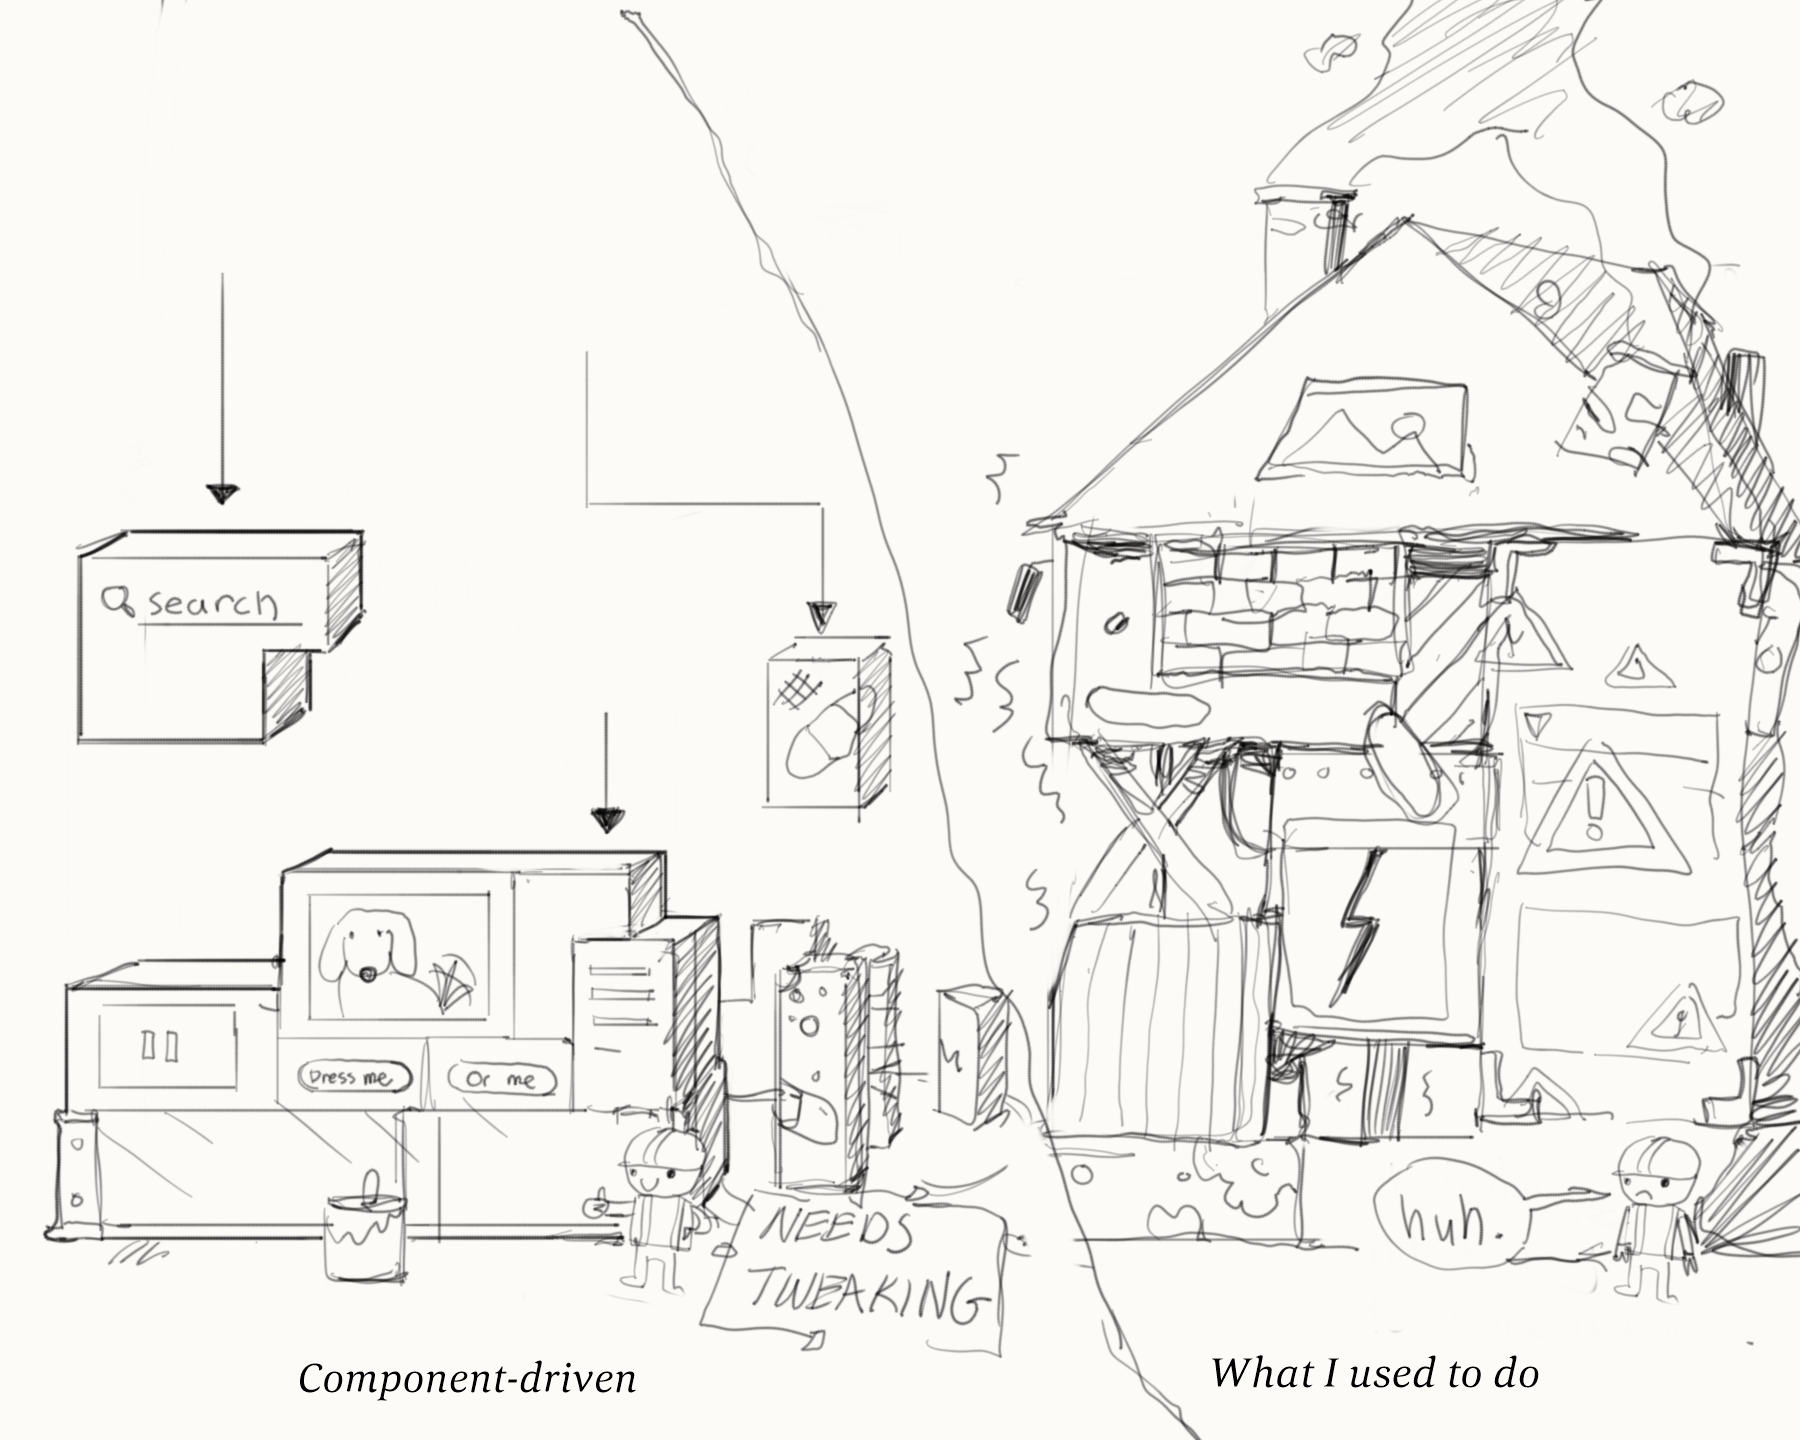 search
Dress me
Or me
NEEDS
TWEAKING
Component-driven
huh.
What I used to do